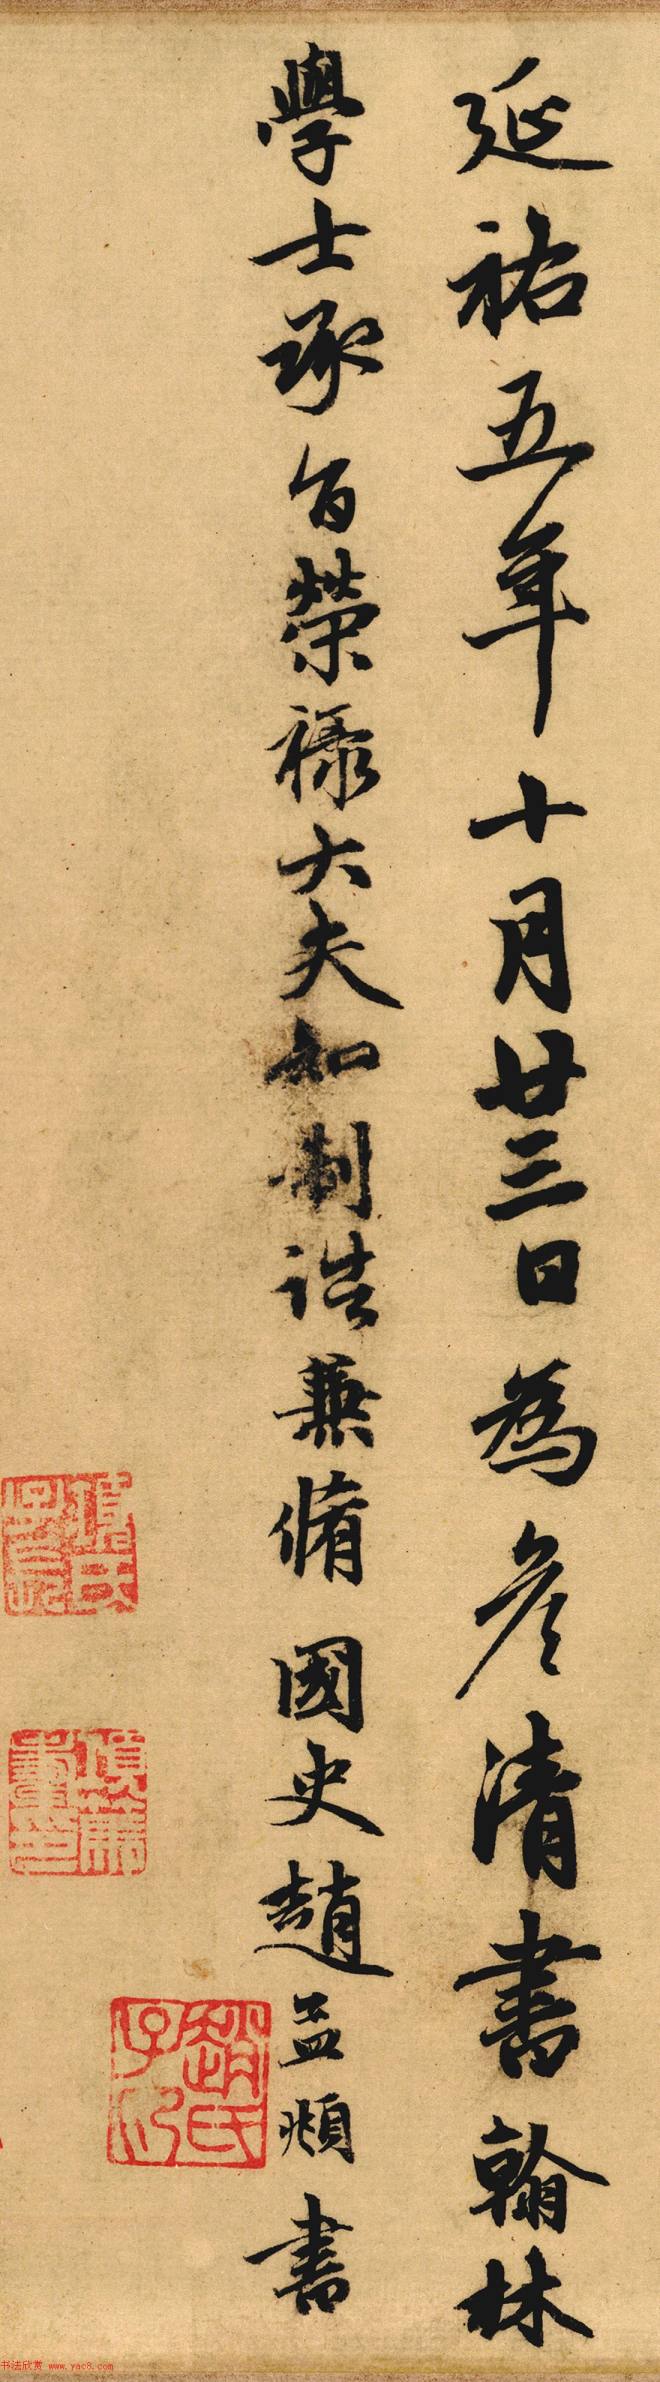 延祐五年十月廿三日為彥清書翰林
學士承旨榮祿大夫知制誥兼脩國史趙孟頫書
趙氏子昂
书法欣赏 www.yac8.com